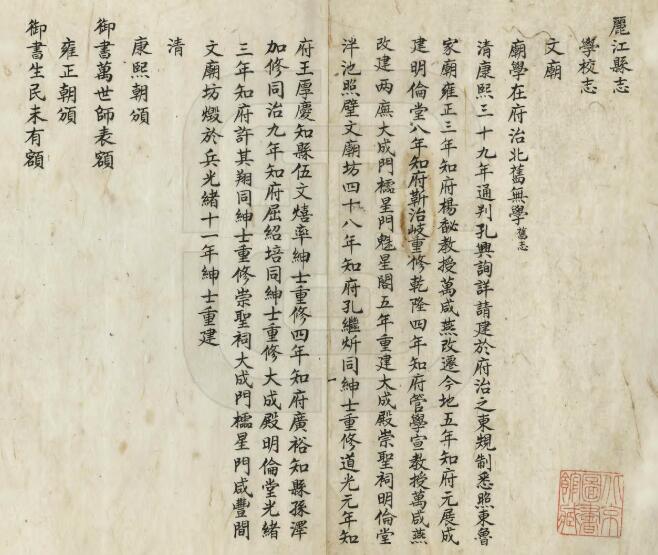 麗江縣志
學校志
文廟
廟學在府治北舊無學舊志
清康熙三十九年通判孔興詢詳請建於府治之東規制悉照東魯
家廟雍正三年知府楊馝教授萬咸燕改遷今地五年知府元展成
建明倫堂八年知府靳治岐重修乾隆四年知府管學宣教授萬咸燕
改建两廡大成門櫺星門魁星閣五年重建大成殿崇聖祠明倫堂
泮池照壁文廟坊四十八年知府孔繼炘同紳士重修道光元年知
府王厚慶知縣伍文熺率紳士重修四年知府廣裕知縣孫澤
加修同治九年知府屈紹培同紳士重修大成殿明倫堂光緒
三年知府許其翔同紳士重修崇聖祠大成門櫺星門咸豐間
文廟坊燬於兵光緒十一年紳士重建
清
康熙朝頒
御書萬世師表額
雍正朝頒
御書生民未有額